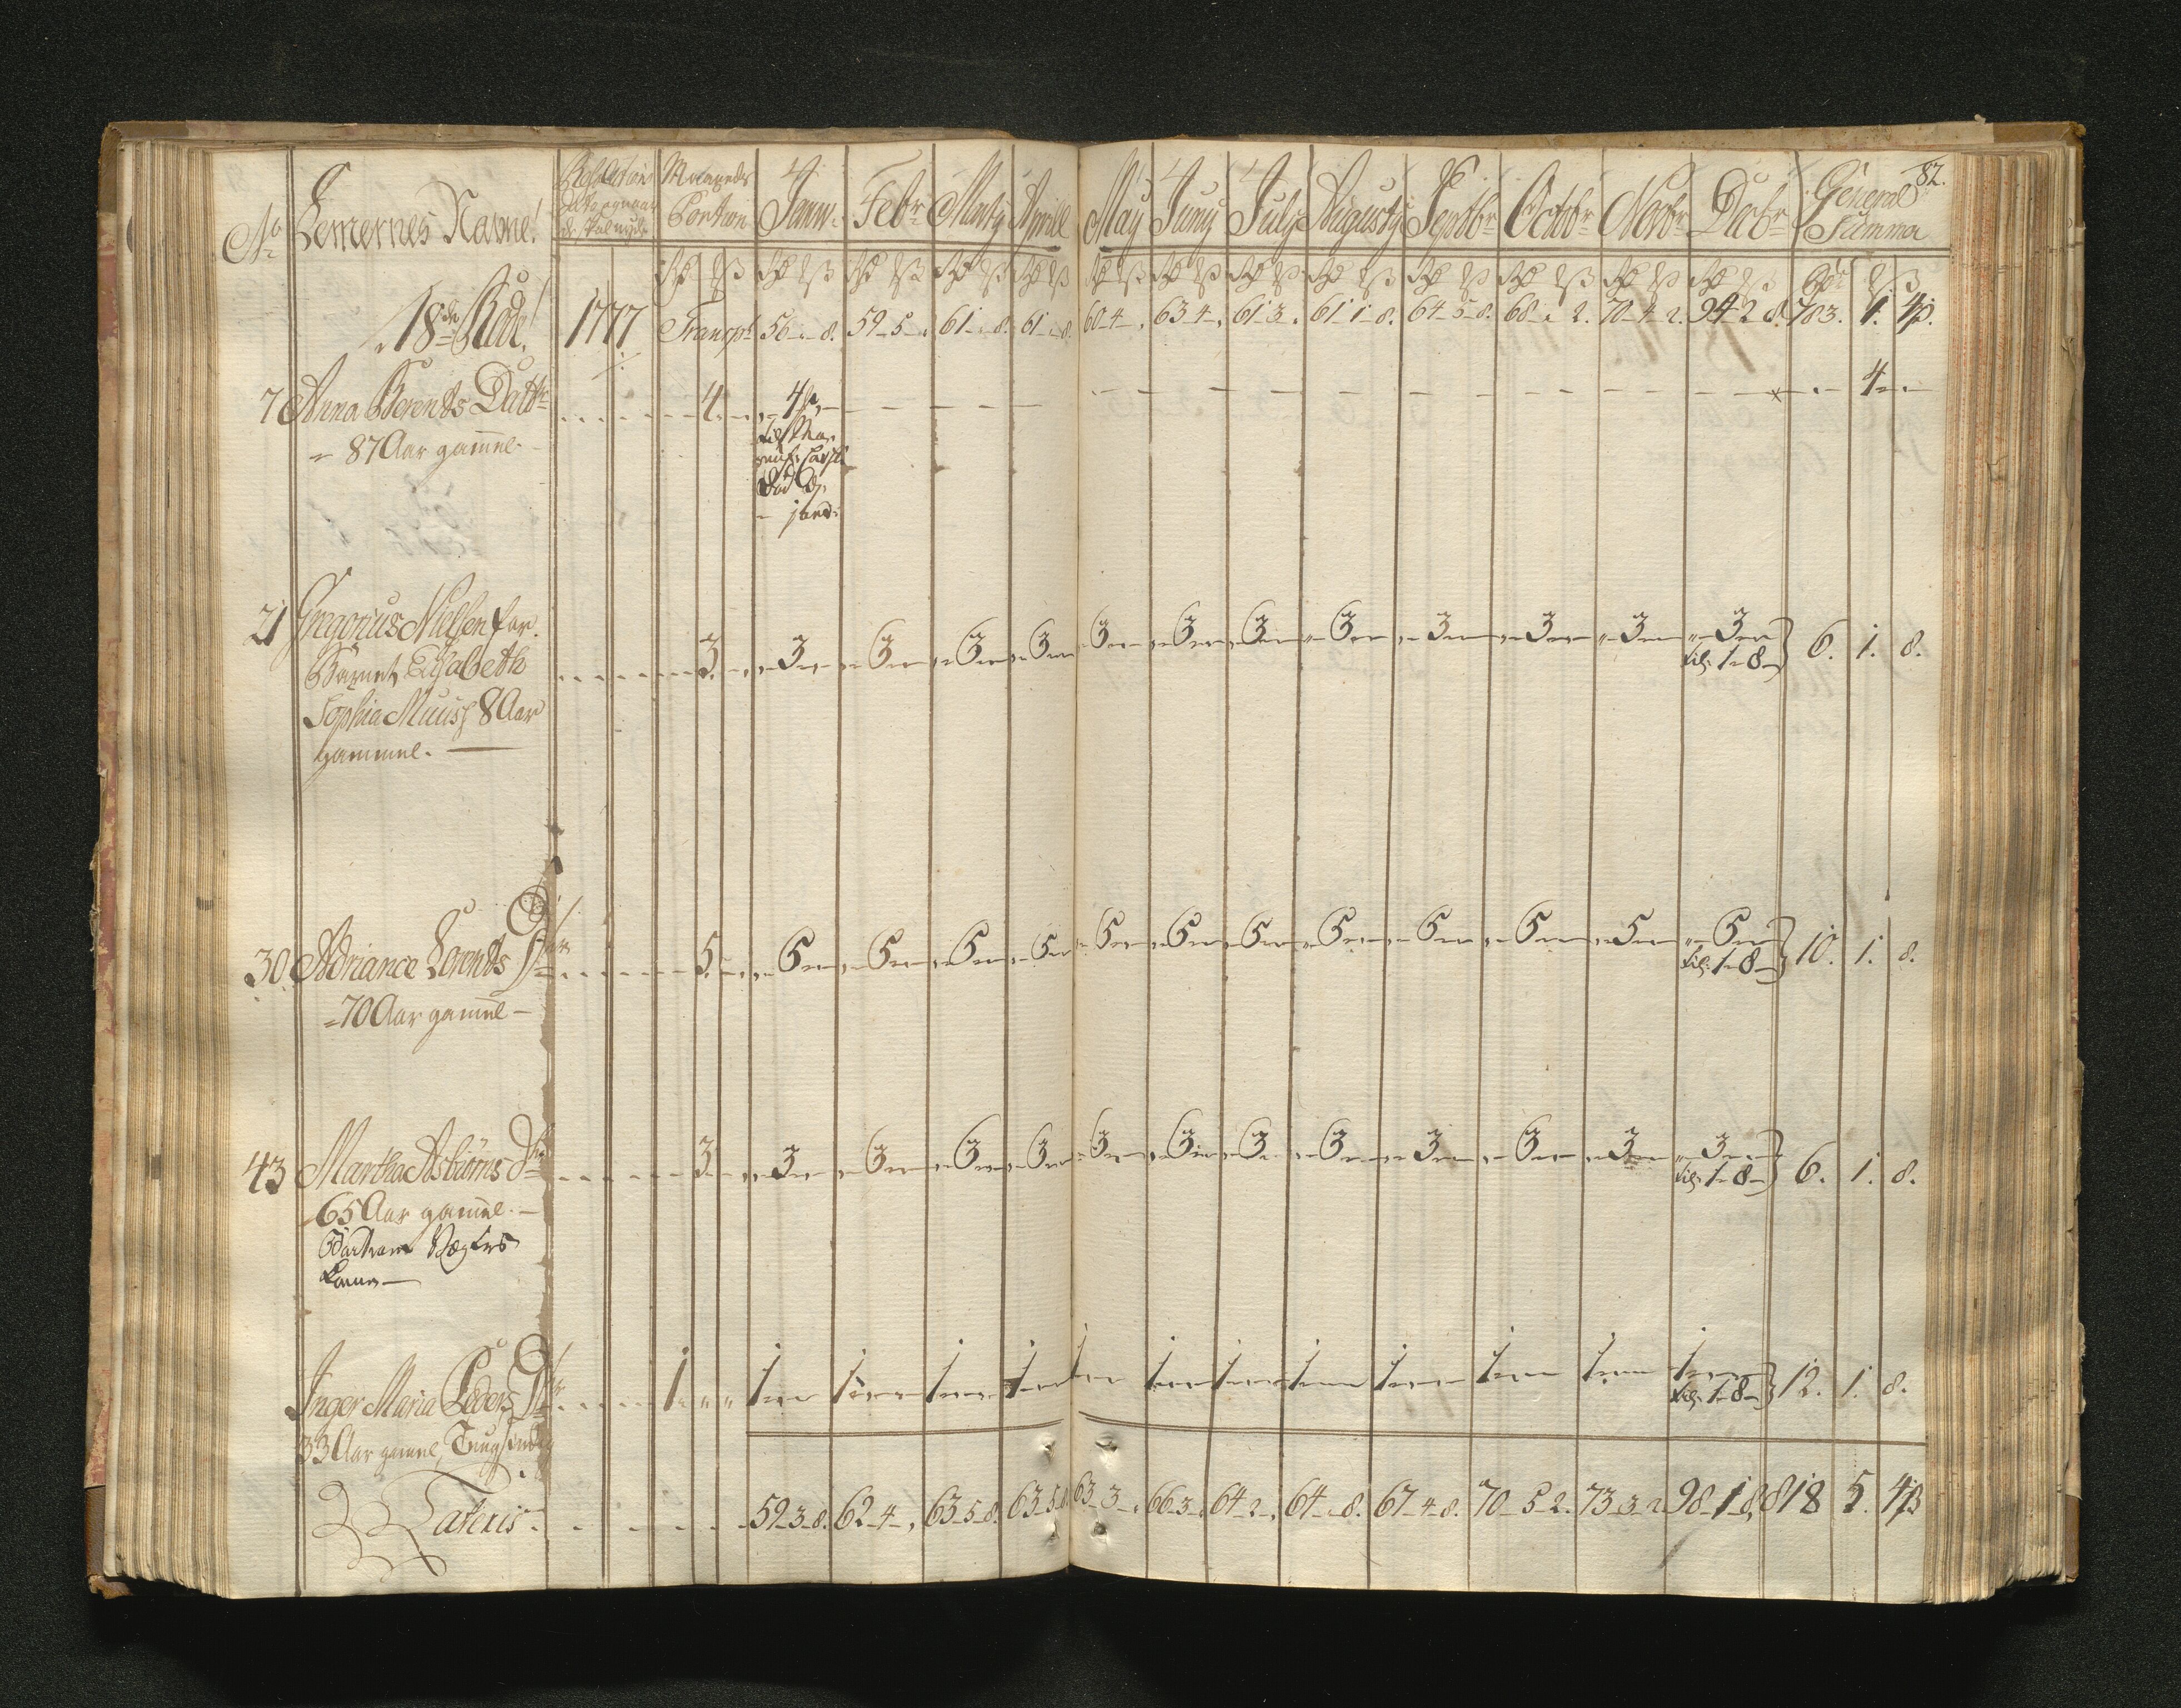 82.
No Lemernes Navne! Maaneds Portion Janu: Febr Marty Aprill May Juny July Augusty Septbr Octobr Novbr Decbr General Summa
18de Rode! 1777 Transpt 56 - " - 8. 59 - 5 - " 61 - " - 8. 61 - " - 8. 60 - 4 - " 63 - 4 - " 61 - 3 - " 61 - 1 - 8. 64 - 5 - 8. 68 - " - 2. 70 - 4 - 2. 94 - 2 - 8. 783. 1. 4ß.
7 Anna Berents Datter 4. 4 4
87 Aar gam̅el
21 Gregorius Nielsen for 3. 3 3 3 3 3 3 3 3 3 3 3 3
Barnet Elisabeth til: 1 - 8 6. 1. 8.
Sophia Muus 8 Aar
gammel.
30 Adriance Lorents Dtr 5. 5 5 5 5 5 5 5 5 5 5 5 5
til: 1 - 8 10. 1. 8.
70 Aar gam̅el
43 Martha Asbiørns Dtr 3. 3 3 3 3 3 3 3 3 3 3 3 3
til: 1 - 8 6. 1. 8.
65 Aar gam̅el.
Kone
Inger Maria Peders Dtr 1 1 1 1 1 1 1 1 1 1 1 1 1
til: 1 - 8 12. 1. 8.
33 Aar gamel,
Lateris 59 - 3 - 8. 62 - 4 - " 63 - 5 - 8. 63 - 5 - 8. 63 - 3 - " 66 - 3 - " 64 - 2 - " 64 - " - 8. 67 - 4 - 8. 70 - 5 - 2. 73 - 3 - 2 98 - 1 - 8. 818 5. 4ß